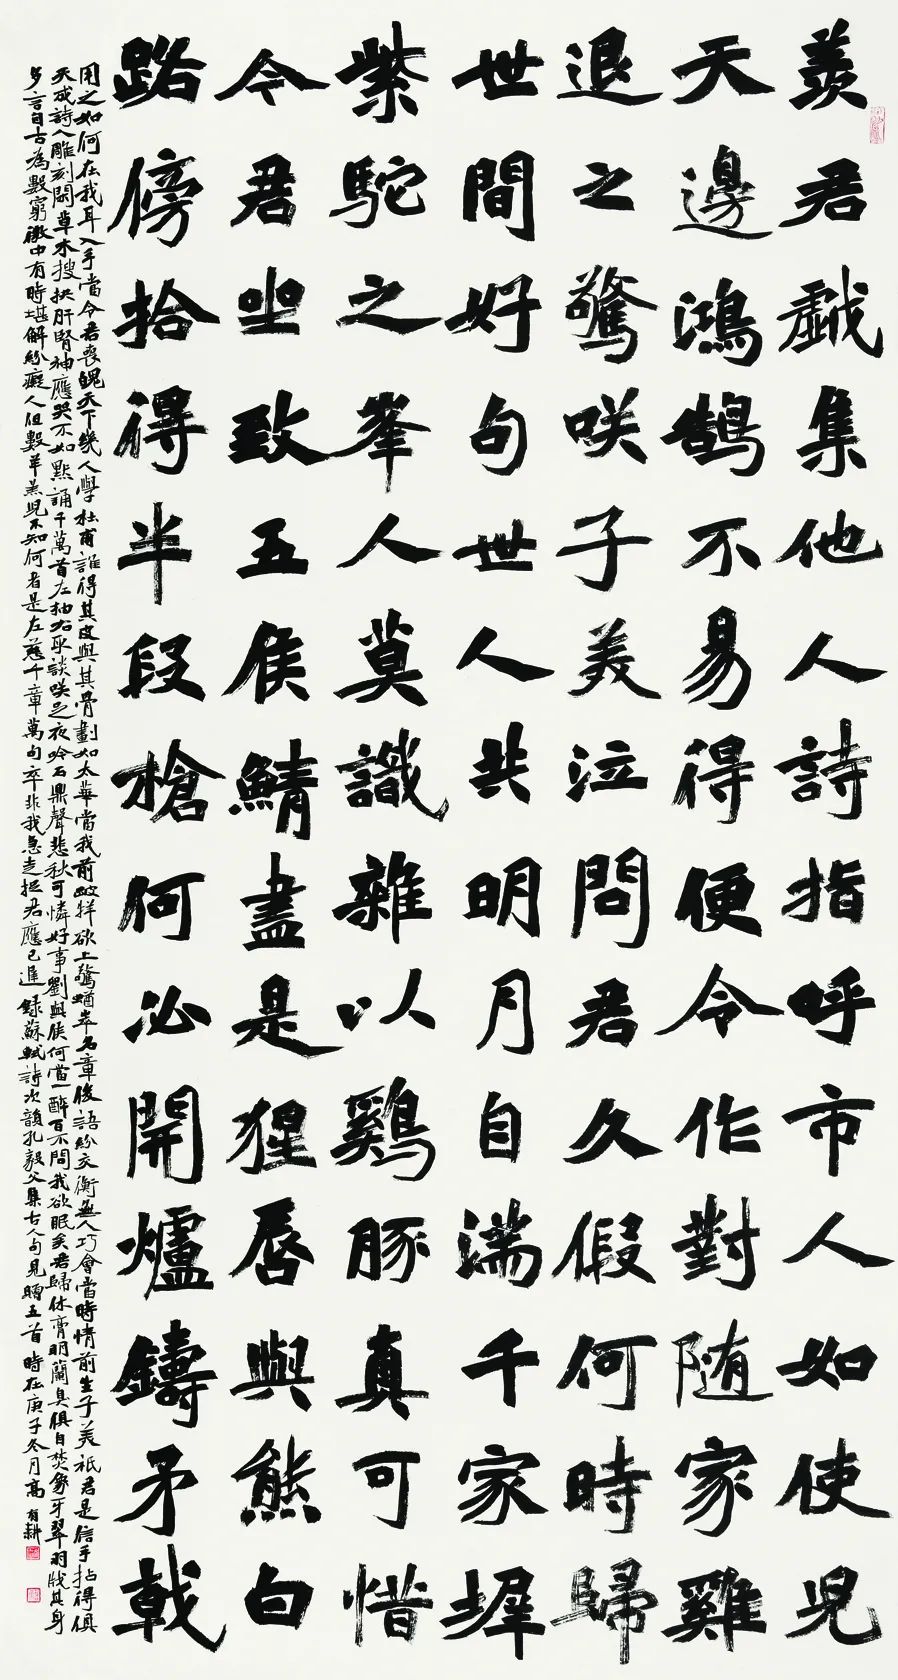 羨君戲集他人詩指呼市人如使兒
天邊鴻鵠不易得便令作對随家雞
退之驚咲子美泣問君久假何時歸
世間好句世人共明月自滿千家墀
紫駝之峯人莫識雜以鷄豚真可惜
今君坐致五侯鯖盡是猩唇與熊白
路傍拾得半段槍何必開爐鑄矛戟
用之如何在我耳入手當令君喪魄天下幾人學杜甫誰得其皮與其骨劃如太華當我前跛牂欲上驚崷崒名章俊語紛交衡無人巧會當時情前生子美祇君是信手拈得俱
天成詩人雕刻閑草木搜抉肝腎神應哭不如默誦千萬首左抽右取談咲足夜吟石鼎聲悲秋可憐好事劉與侯何當一醉百不問我欲眠矣君歸休膏明蘭臭俱自焚象牙翠羽戕其身
多言自古為數窮微中有時堪解紛癡人但數羊羔兒不知何者是左慈千章萬句卒非我急走捉君應已遲 錄蘇軾詩次韻孔毅父集古人句見贈五首 時在庚子冬月高有耕